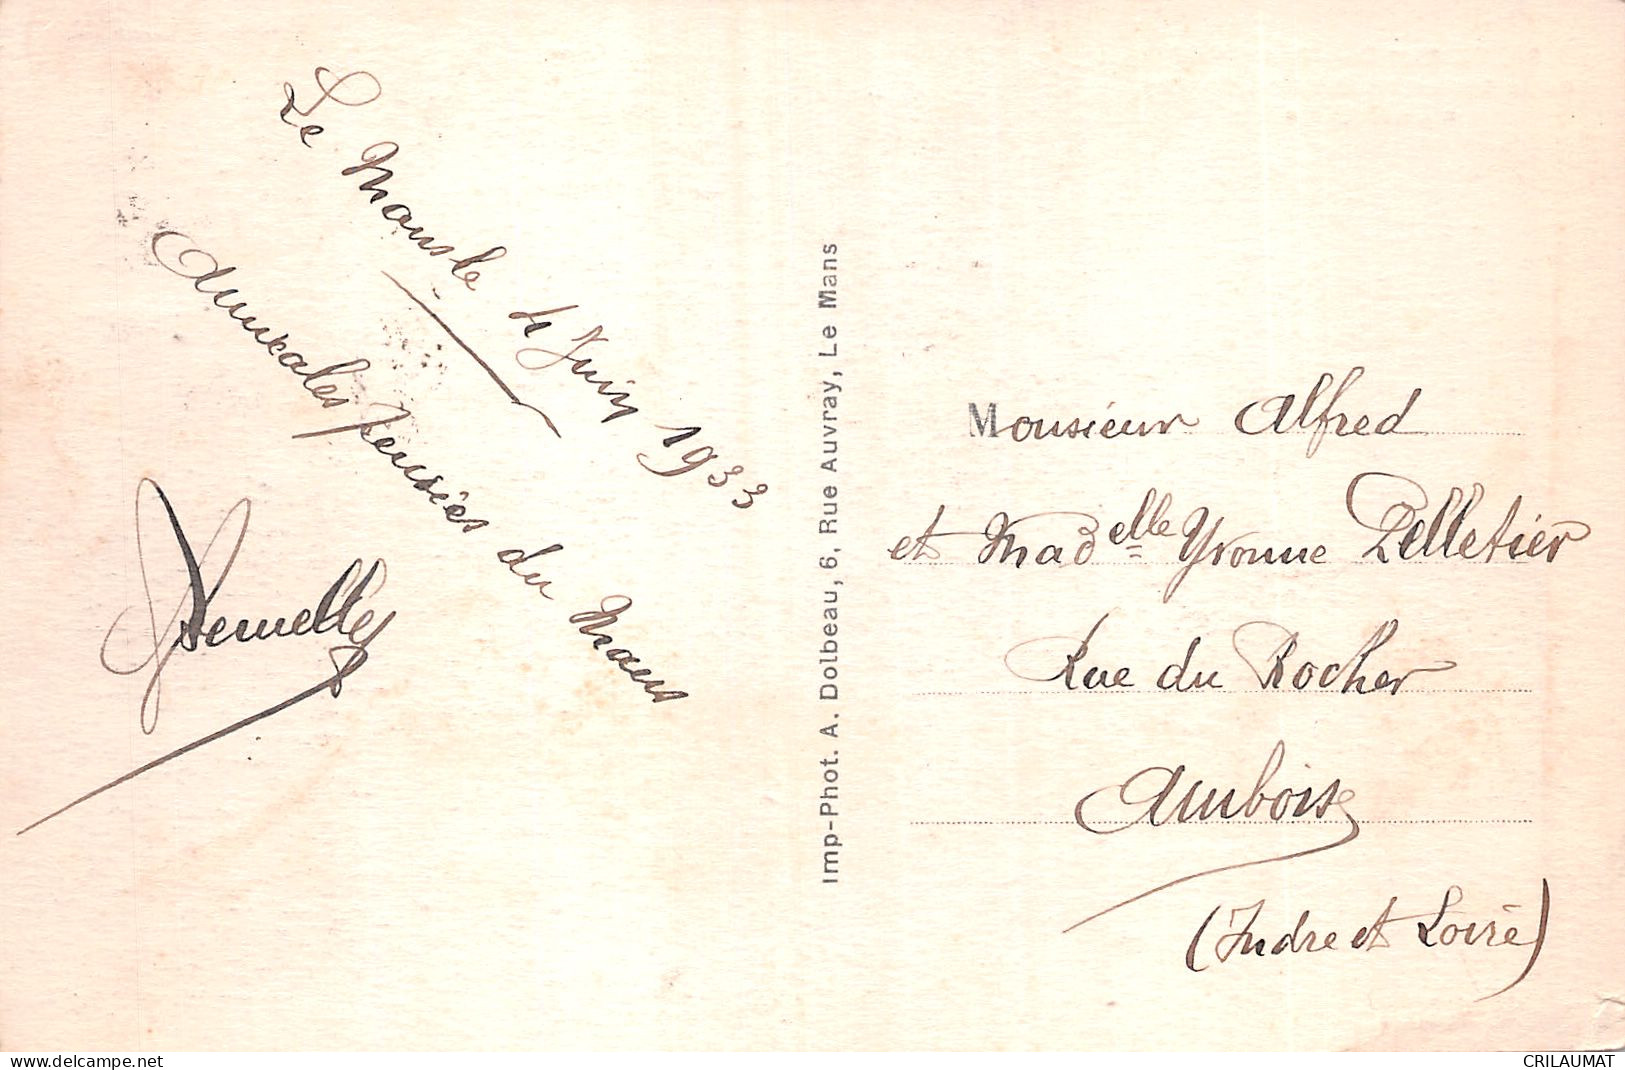 Le Mans le 4 Juin 1933
Amicales pensées du Mans
Imp-Phot. A. Dolbeau, 6, Rue Auvray, Le Mans
Monsieur Alfred
et Madelle Yvonne Pelletier
Rue du Rocher
Amboise
(Indre et Loire)
www.delcampe.net
CRILAUMAT